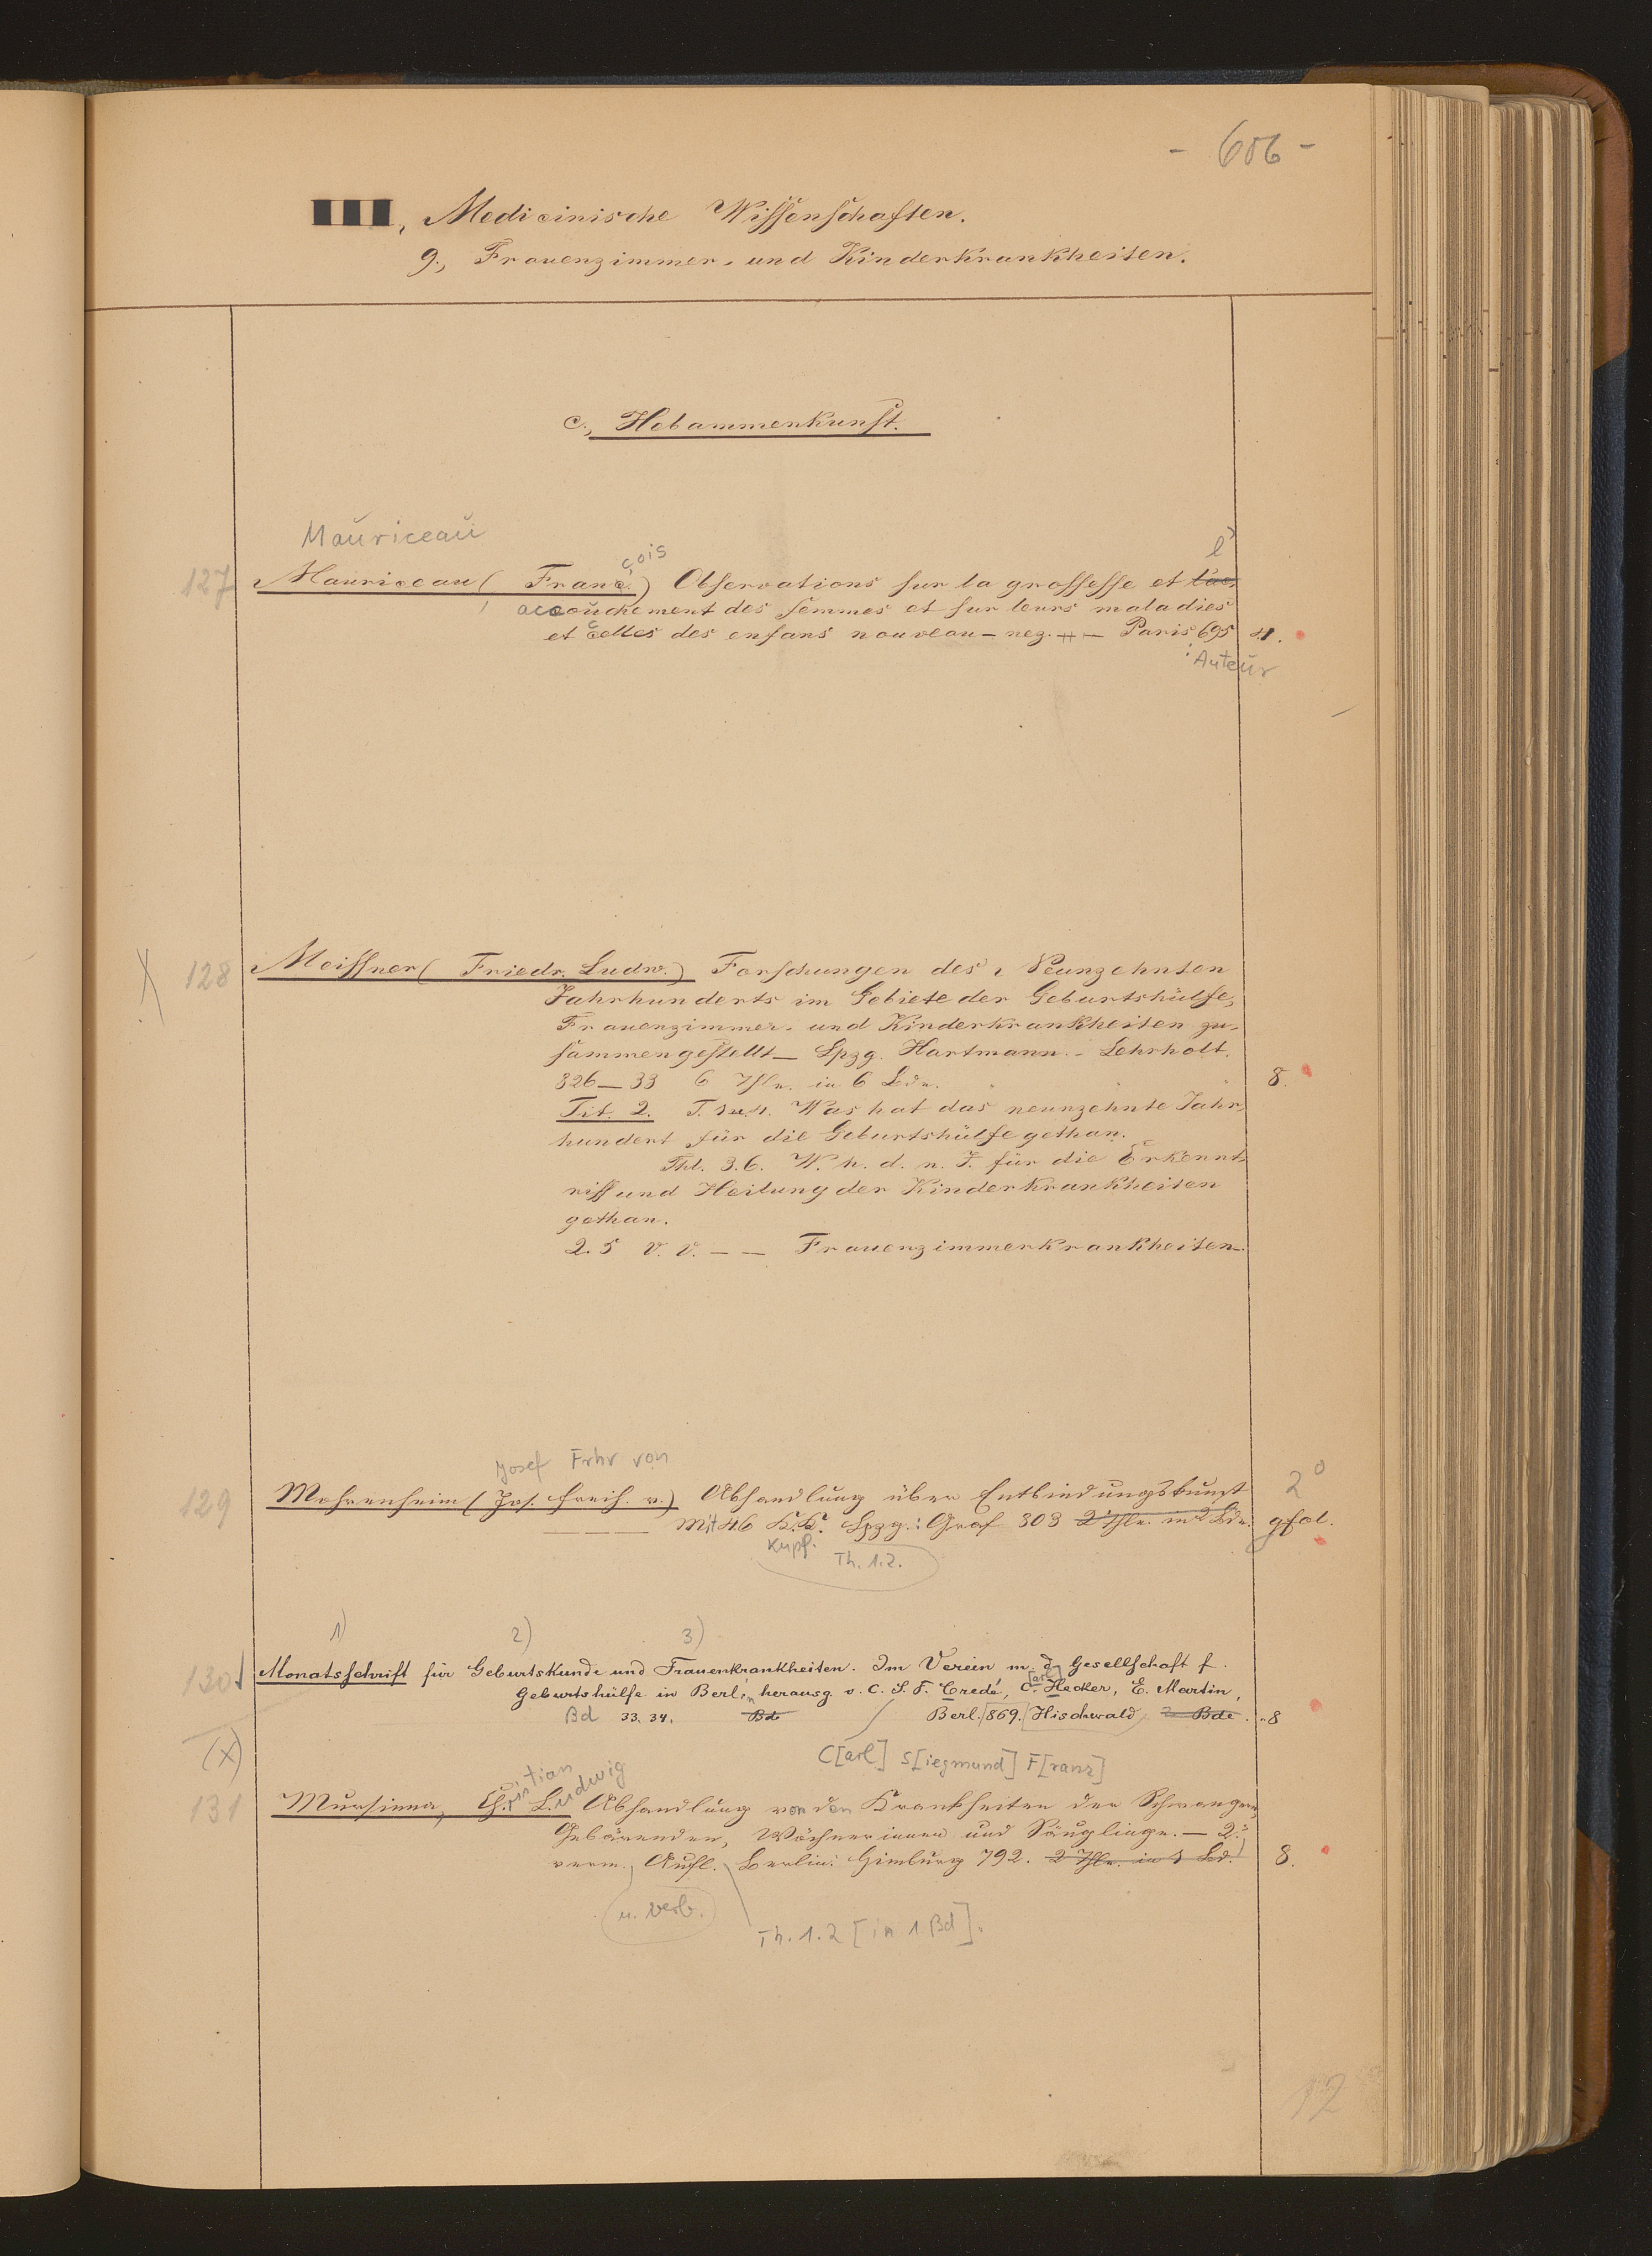 - 606 -
III, Medicinische Wissenschaften.
9., Frauenzimmer- und Kinderkrankheiten.
c., Hebammenkunst.
Mauriceau
çois l'
127 Mauriceau (Franc.) Observations sur la grossesse et l'ac
accouchement des femmes et sur leurs maladies
et celles des enfans nouveau-nez. — Paris 695 4.
: Auteur
X 128 Meissner (Friedr. Ludw.) Forschungen des Neunzehnten
Jahrhunderts im Gebiete der Geburtshülfe,
Frauenzimmer- und Kinderkrankheiten zu-
sammengestellt — Lpzg. Hartmann - Lehrholt.
826—33 6 Thle. in 6 Bdn. 8.
Tit. 2. T. 1u.4. Was hat das neunzehnte Jahr-
hundert für die Geburtshülfe gethan.
Thl. 3.6. W. h. d. n. J. für die Erkennt-
niss und Heilung der Kinderkrankheiten
gethan.
2. 5 v. v. — — Frauenzimmerkrankheiten.
Josef Frhr von
129 Mohrenheim (Jos. Freih. v.) Abhandlung über Entbindungskunst 2°
Mit 46 K.K. Lpzg.: Graf 803 2 Thle. in 2 Bdn. gfol.
Kupf. Th. 1.2.
1) 2) 3)
130 Monatsschrift für Geburtskunde und Frauenkrankheiten. Im Verein m. d. Gesellschaft f.
Geburtshülfe in Berlin herausg. v. C. S. F. Credé, C. [arl] Hecker, E. Martin,
Bd 33. 34. Bde Berl. 869. Hischwald 2 Bde. 8
(X) C[arl] S[iegmund] F[ranz]
ristian udwig
131 Mursinna, Ch. L. Abhandlung von den Krankheiten der Schwangern,
Gebärenden, Wöchnerinnen und Säuglinge. — 2.
verm. Aufl. Berlin: Himburg 792. 2 Thle. in 1 Bd. 8.
u. verb.
Th. 1.2 [in 1 Bd].
12